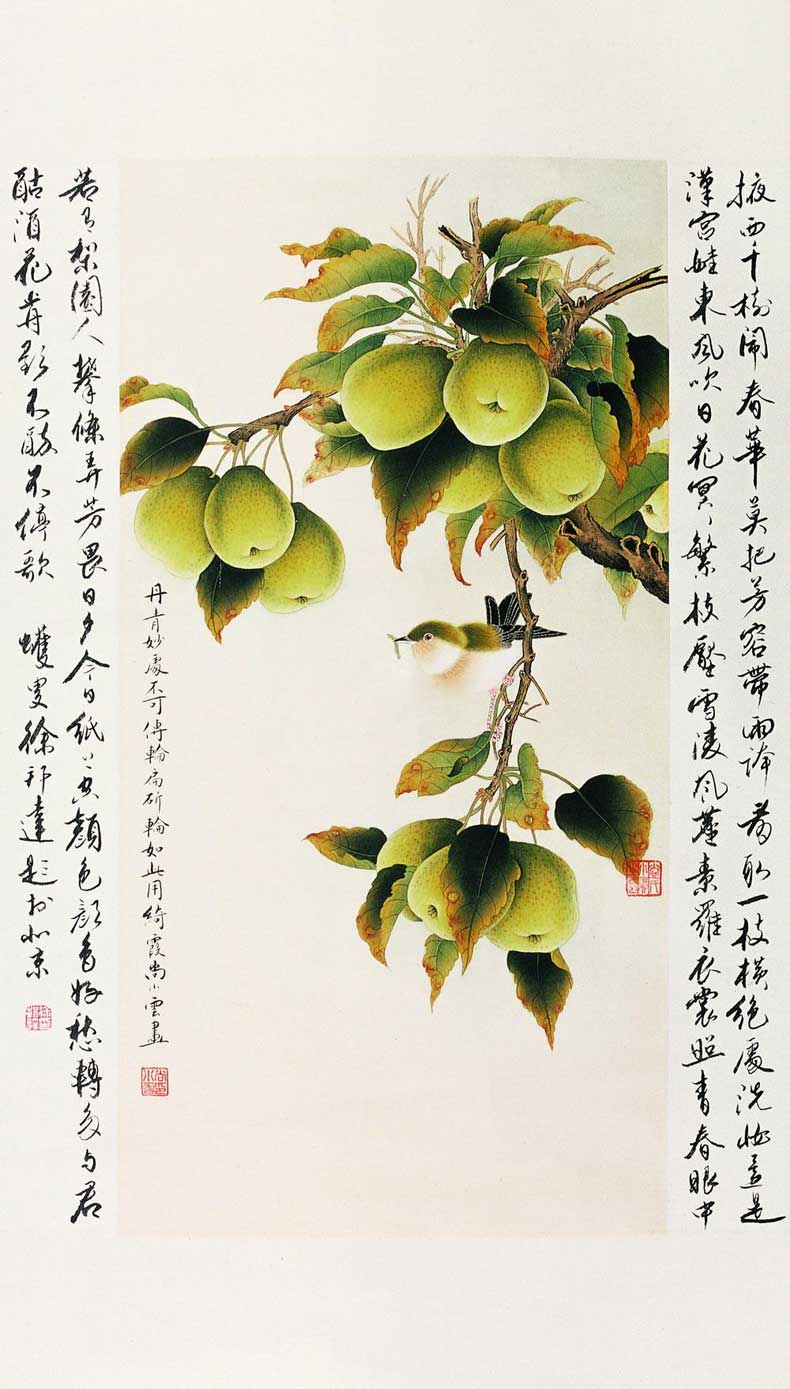 掖西千樹鬧春華莫把芳容帶雨誇取一枝橫絕處洗妝是
漢宮娃東風吹日花冥〻繁枝壓雪凌風塵素羅衣裳照青春眼中
若有梨園人攀條弄芳畏日夕今日紙上空顏色顏色好愁轉多與君
酤酒花前不醉不停歌 蠖叟徐邦達題於北京
丹青妙處不可傳輪扁斫輪如此用綺霞尚小雲畫